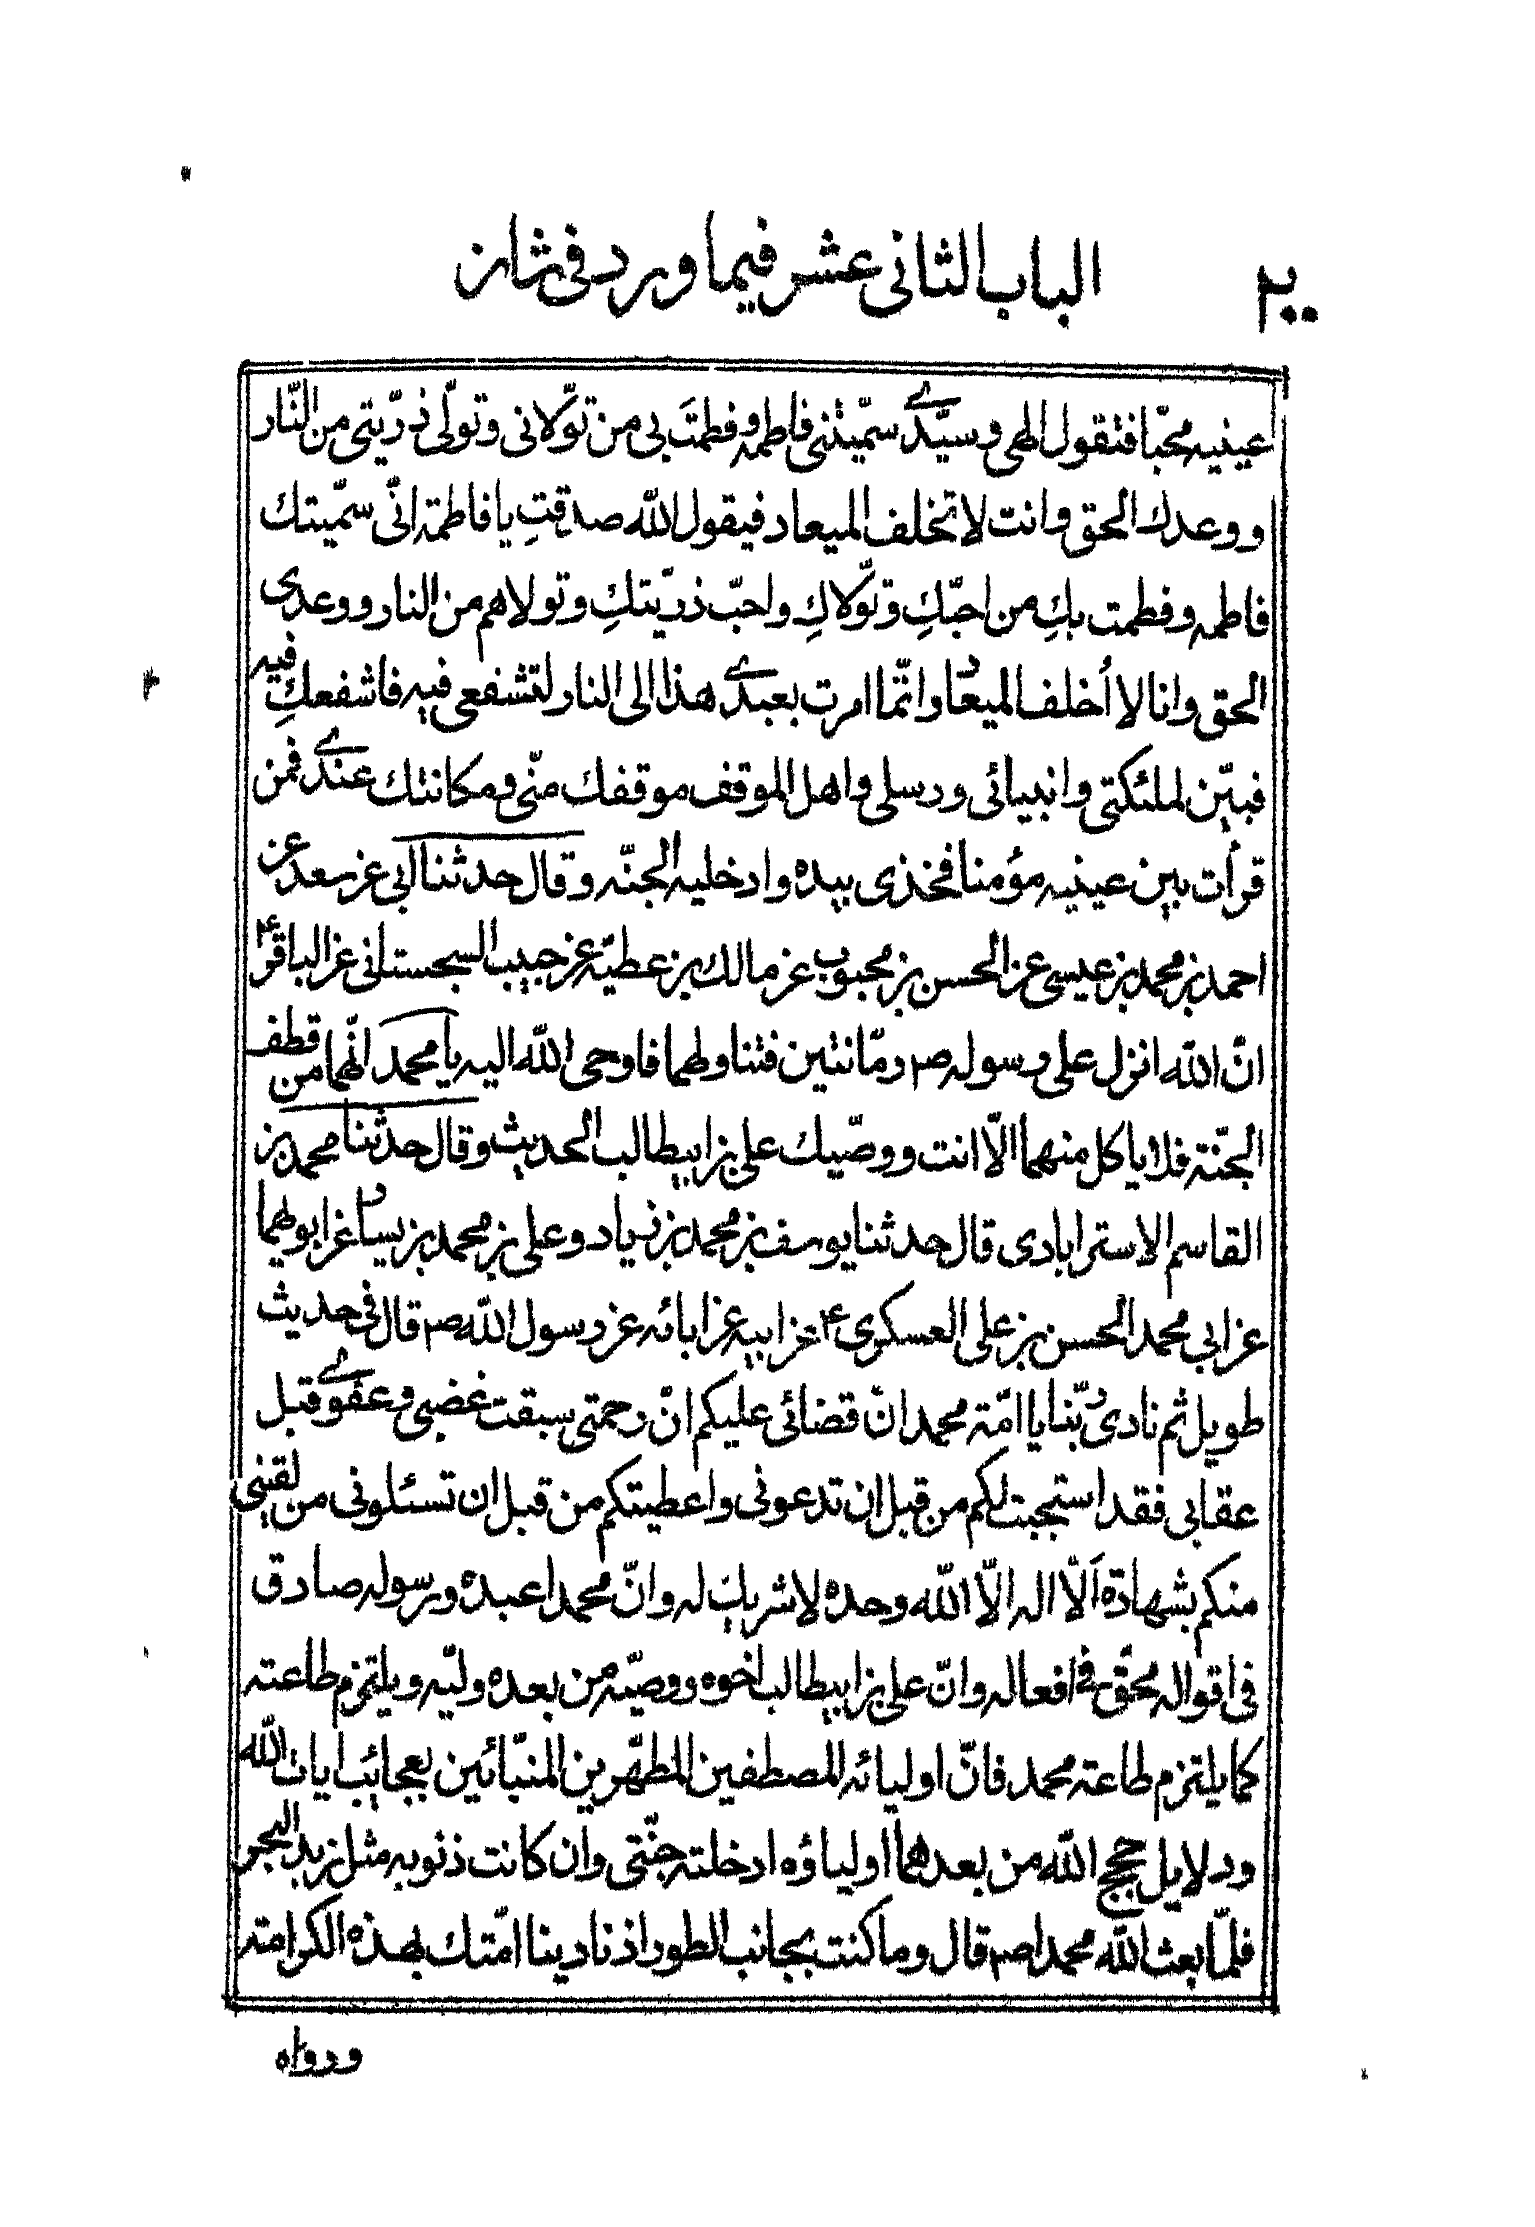 ٢٠٠ الباب الثانی عشر فیما ورد فی شان
عینیه محبّا فتقول الهی و سیّدی سمّیتنی فاطمه و فطمتَ بی من تولّانی و تولّی ذرّیتی من النّار
و وعدك الحق و انت لا تخلف المیعاد فیقول اللّه صدقتِ یا فاطمة انّی سمّیتك
فاطمه و فطمت بكِ من احبّكِ و تولّاكِ و احبّ ذرّیتكِ و تولاهم من النار و وعدی
الحق و انا لا أخلف المیعاد و انّما امرت بعبدی هذا الی النار لتشفعی فیه فاشفعكِ فیه
فیبیّن لملئکتی و انبیائی و رسلی و اهل الموقف موقفك منّی و مکانتك عندی فمن
قرأت بین عینیه مؤمنا فخذی بیده و ادخلیه الجنّه و قال حدثنا ابی عن سعد عن
احمد بن محمد بن عیسی عن الحسن بن محبوب عن مالك بن عطیّه عن حبیب السجستانی عن الباقر ع
انّ اللّه انزل علی رسوله ص رمّانتین فتناولهما فاوحی اللّه الیه یا محمد انّهما من قطف
الجنّة فلا یاکل منهما الّا انت و وصّیك علی بن ابیطالب الحدیث و قال حدثنا محمد بن
القاسم الاسترابادی قال حدثنا یوسف بن محمد بن زیاد و علی بن محمد بن یسار عن ابویهما
عن ابی محمد الحسن بن علی العسکری ع عن ابیه عن ابائه عن رسول اللّه ص قال فی حدیث
طویل ثم نادی ربّنا یا امّة محمد انّ قضائی علیکم انّ رحمتی سبقت غضبی و عفوی قبل
عقابی فقد استجبت لکم من قبل ان تدعونی و اعطیتکم من قبل ان تسئلونی من لقینی
منکم بشهادة اَلّا اله الّا اللّه وحده لا شریك له و انّ محمدا عبده و رسوله صادق
فی اقواله محقّ فی افعاله و انّ علی بن ابیطالب اخوه و وصیّه من بعده و لیّه و یلتزم طاعته
کما یلتزم طاعة محمد فانّ اولیائه المصطفین المطهّرین المنبّائین بعجائب ایات اللّه
و دلایل حجج اللّه من بعدهما اولیاؤه ادخلته جنّتی و ان کانت ذنوبه مثل زبد البحر
فلمّا بعث اللّه محمدا ص قال و ما کنت بجانب الطور اذ نادینا امّتك بهذه الکرامة
و رواه